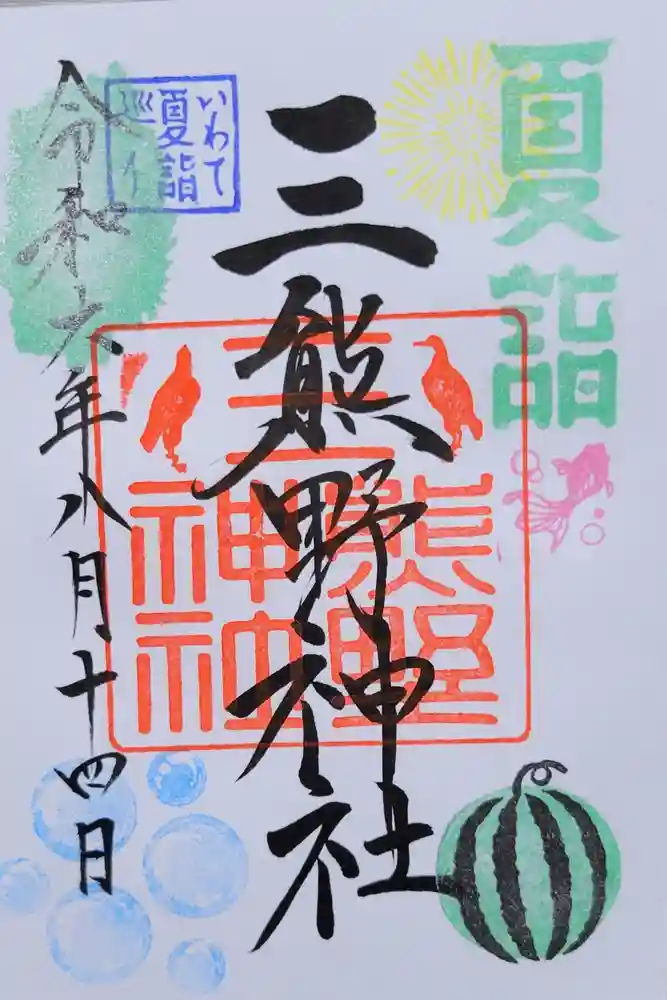 夏詣
いわて
夏詣
巡り
三熊野神社
三
熊野
神社
令和六年八月十四日